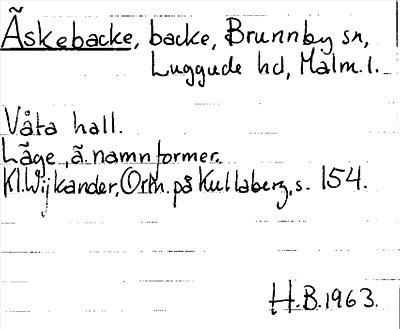 Åskebacke, backe, Brunnby sn,
Luggude hd, Malm. l.
Våta hall.
Läge, ä. namnformer.
Kl. Wijkander, Ortn. på Kullaberg, s. 154.
H.B. 1963.